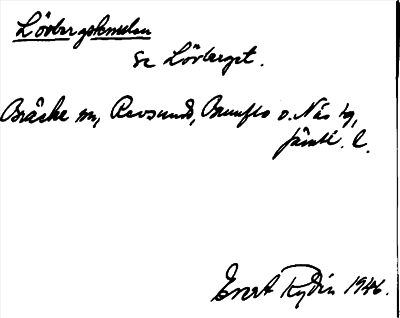 Lövbergskmulen
se Lövberget.
Bräcke sn, Revsund, Brunflo o. Näs tg,
Jämtl. l.
Evert Rydin 1946.